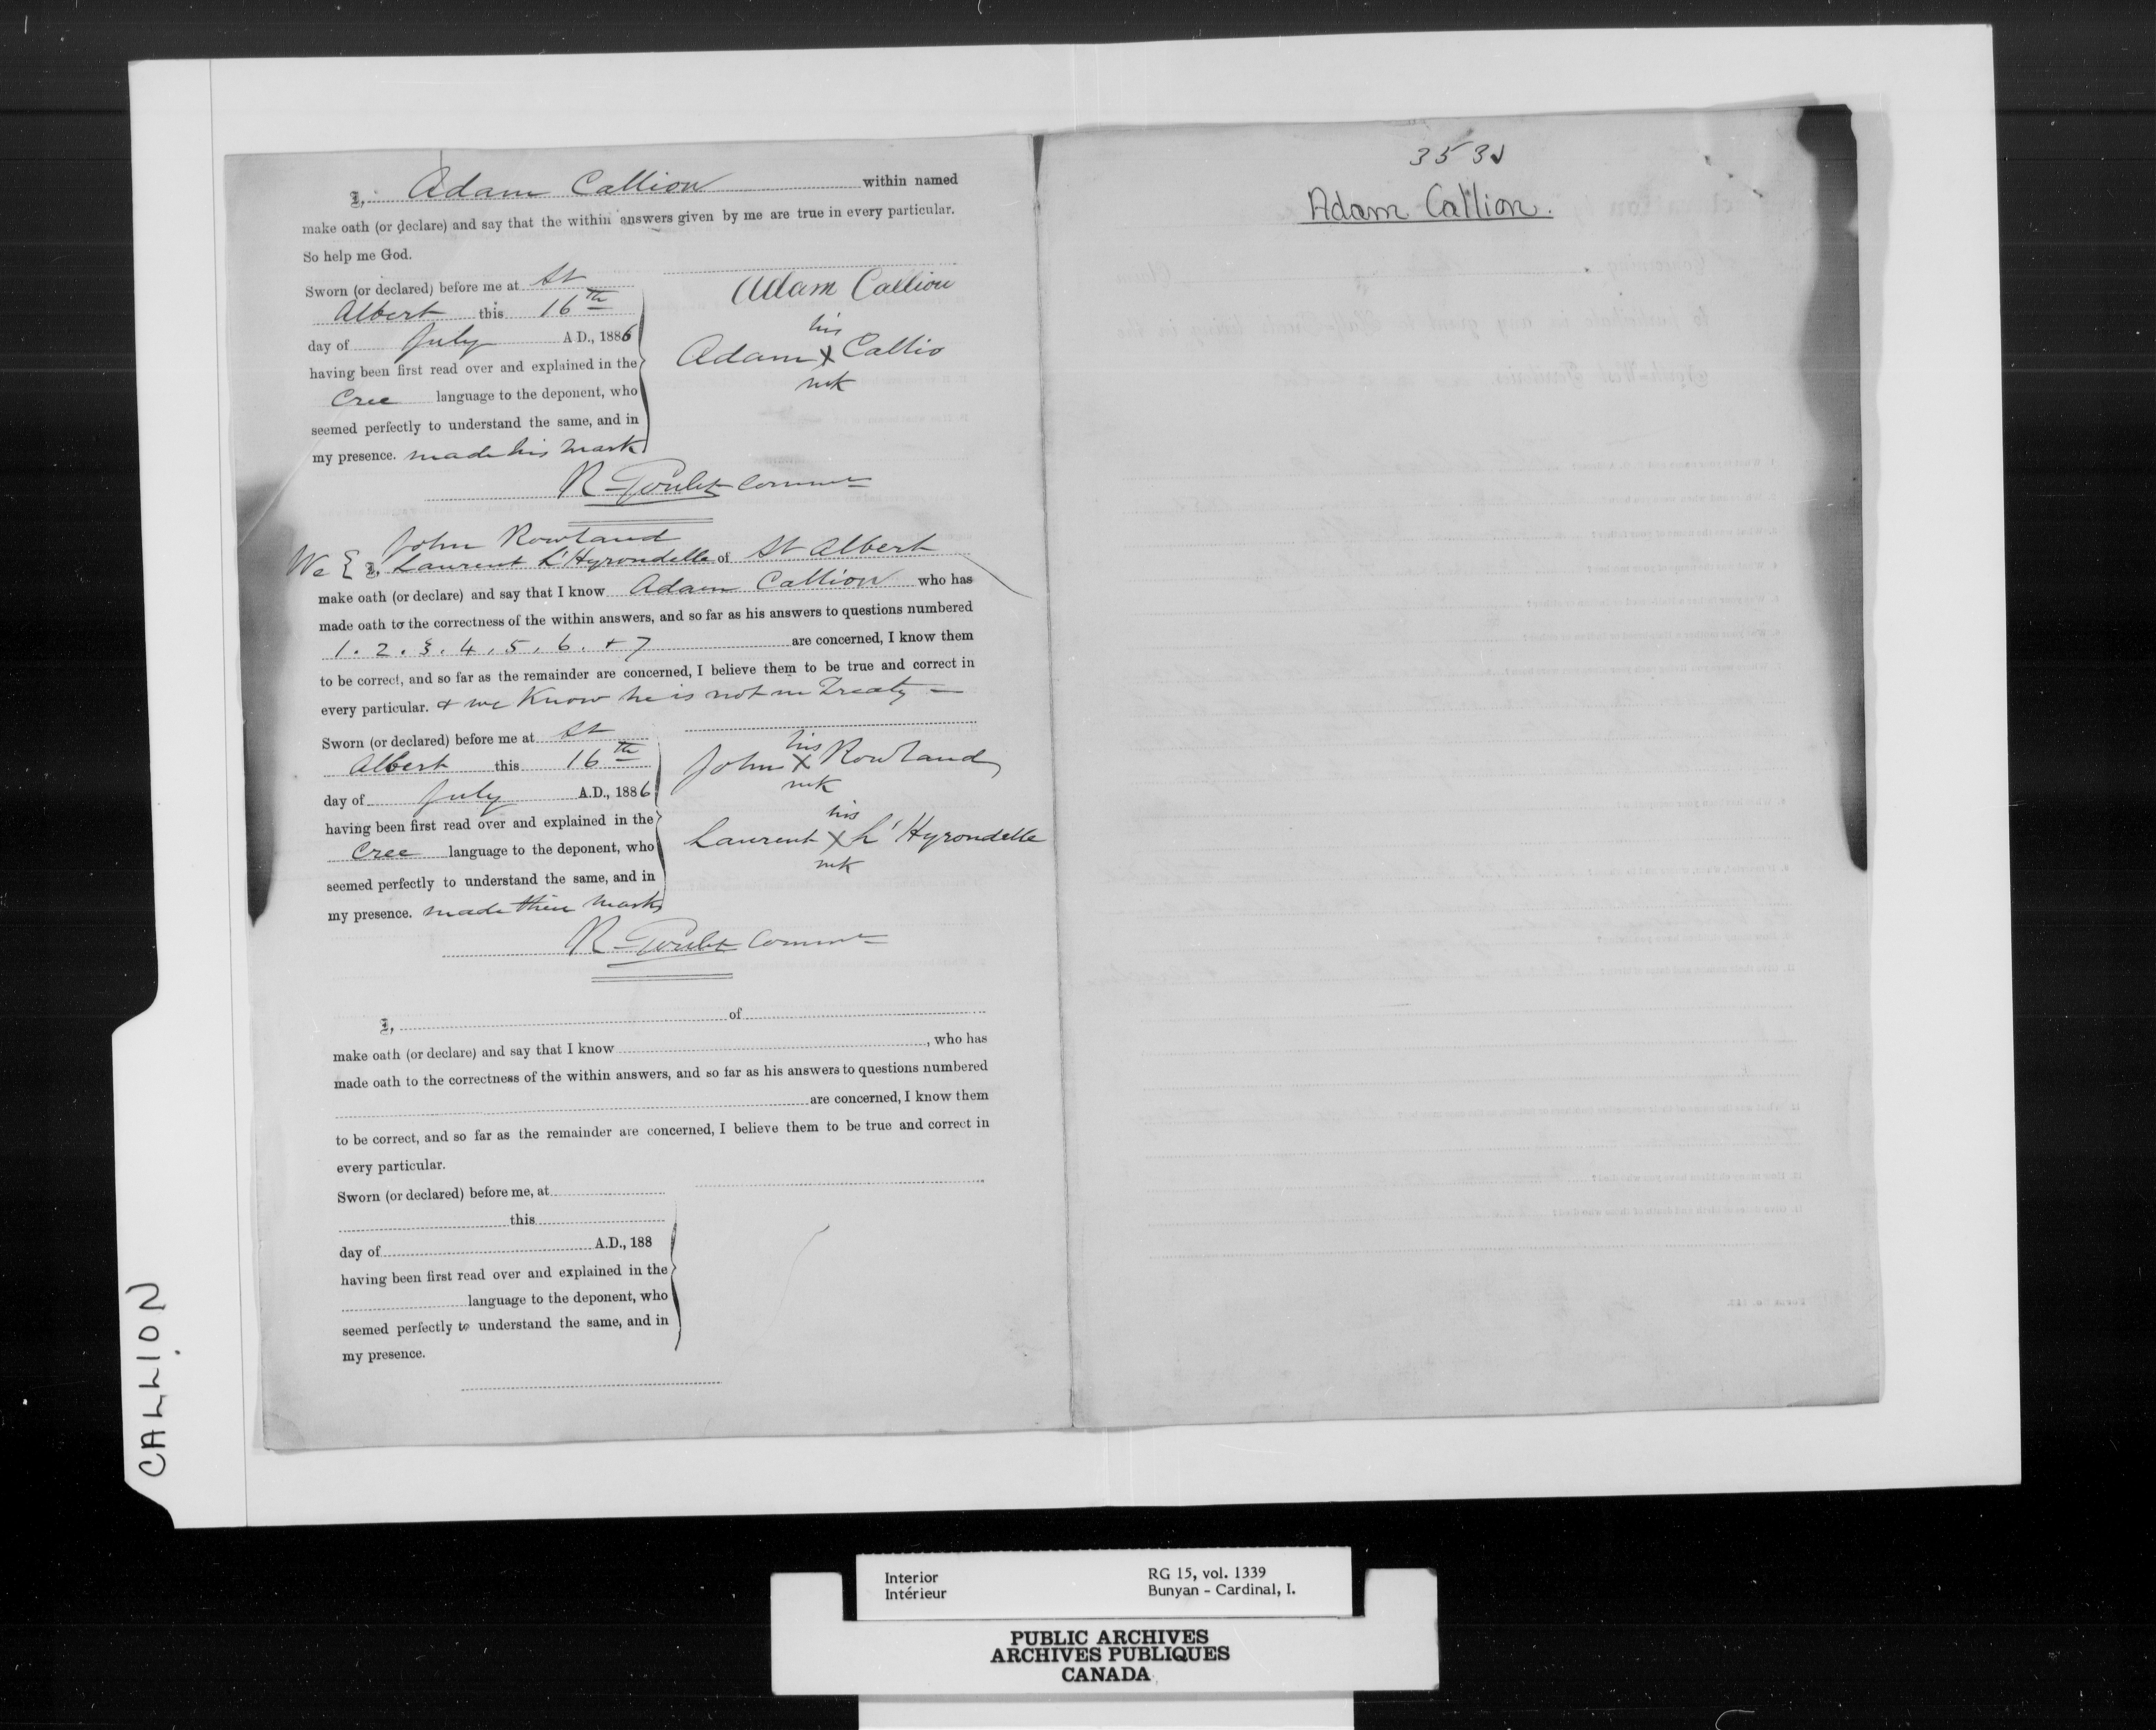 I, Adam Callion within named
make oath (or declare) and say that the within answers given by me are true in every particular.
So help me God.
Sworn (or declared) before me at St
Albert this 16th
day of July A.D., 1886
having been first read over and explained in the
Cree language to the deponent, who
seemed perfectly to understand the same, and in
my presence. made his mark
Adam Callion
his
Adam X Callio
mk
R Goulet Commr
John Rowland
We & I, Laurent L'Hyrondelle of St Albert
make oath (or declare) and say that I know Adam Callion who has
made oath to the correctness of the within answers, and so far as his answers to questions numbered
1. 2. 3. 4, 5, 6. + 7 are concerned, I know them
to be correct, and so far as the remainder are concerned, I believe them to be true and correct in
every particular. & we know he is not in Treaty —
Sworn (or declared) before me at St
Albert this 16th
day of July A.D., 1886
having been first read over and explained in the
Cree language to the deponent, who
seemed perfectly to understand the same, and in
my presence. made their marks
his
John X Rowland
mk
his
Laurent X L'Hyrondelle
mk
R Goulet Commr
I, of
make oath (or declare) and say that I know , who has
made oath to the correctness of the within answers, and so far as his answers to questions numbered
are concerned, I know them
to be correct, and so far as the remainder are concerned, I believe them to be true and correct in
every particular.
Sworn (or declared) before me, at
this
day of A.D., 188
having been first read over and explained in the
language to the deponent, who
seemed perfectly to understand the same, and in
my presence.
353
Adam Callion.
CALLION
Interior RG 15, vol. 1339
Intérieur Bunyan - Cardinal, I.
PUBLIC ARCHIVES
ARCHIVES PUBLIQUES
CANADA